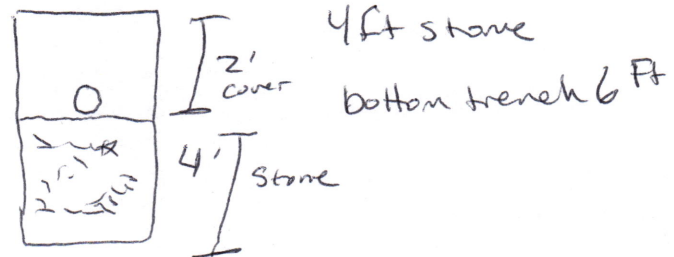 2'
cover
4'
stone
4ft stone
bottom trench 6 Ft